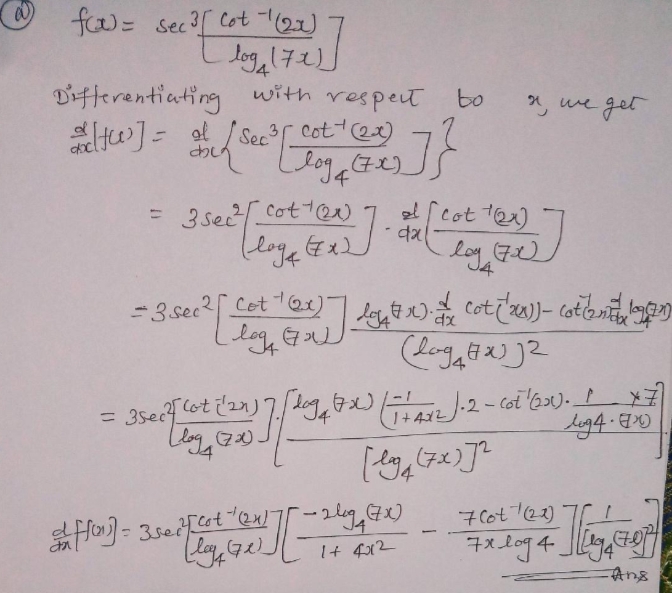 (a) f(x) = sec³[cot⁻¹(2x) / log₄(7x)]
Differentiating with respect to x, we get
d/dx[f(x)] = d/dx{sec³[cot⁻¹(2x) / log₄(7x)]}
= 3 sec²[cot⁻¹(2x) / log₄(7x)] · d/dx[cot⁻¹(2x) / log₄(7x)]
= 3 sec²[cot⁻¹(2x) / log₄(7x)] log₄(7x) · d/dx cot⁻¹(2x)) - cot⁻¹(2x) d/dx log₄(7x) / (log₄(7x))²
= 3 sec²[cot⁻¹(2x) / log₄(7x)] · [log₄(7x) (-1 / 1+4x²) · 2 - cot⁻¹(2x) · 1 / log 4 · (7x) × 7 / [log₄(7x)]²]
d/dx [f(x)] = 3 sec²[cot⁻¹(2x) / log₄(7x)] [-2 log₄(7x) / 1+4x² - 7 cot⁻¹(2x) / 7x log 4] [1 / [log₄(7x)]²]
Ans